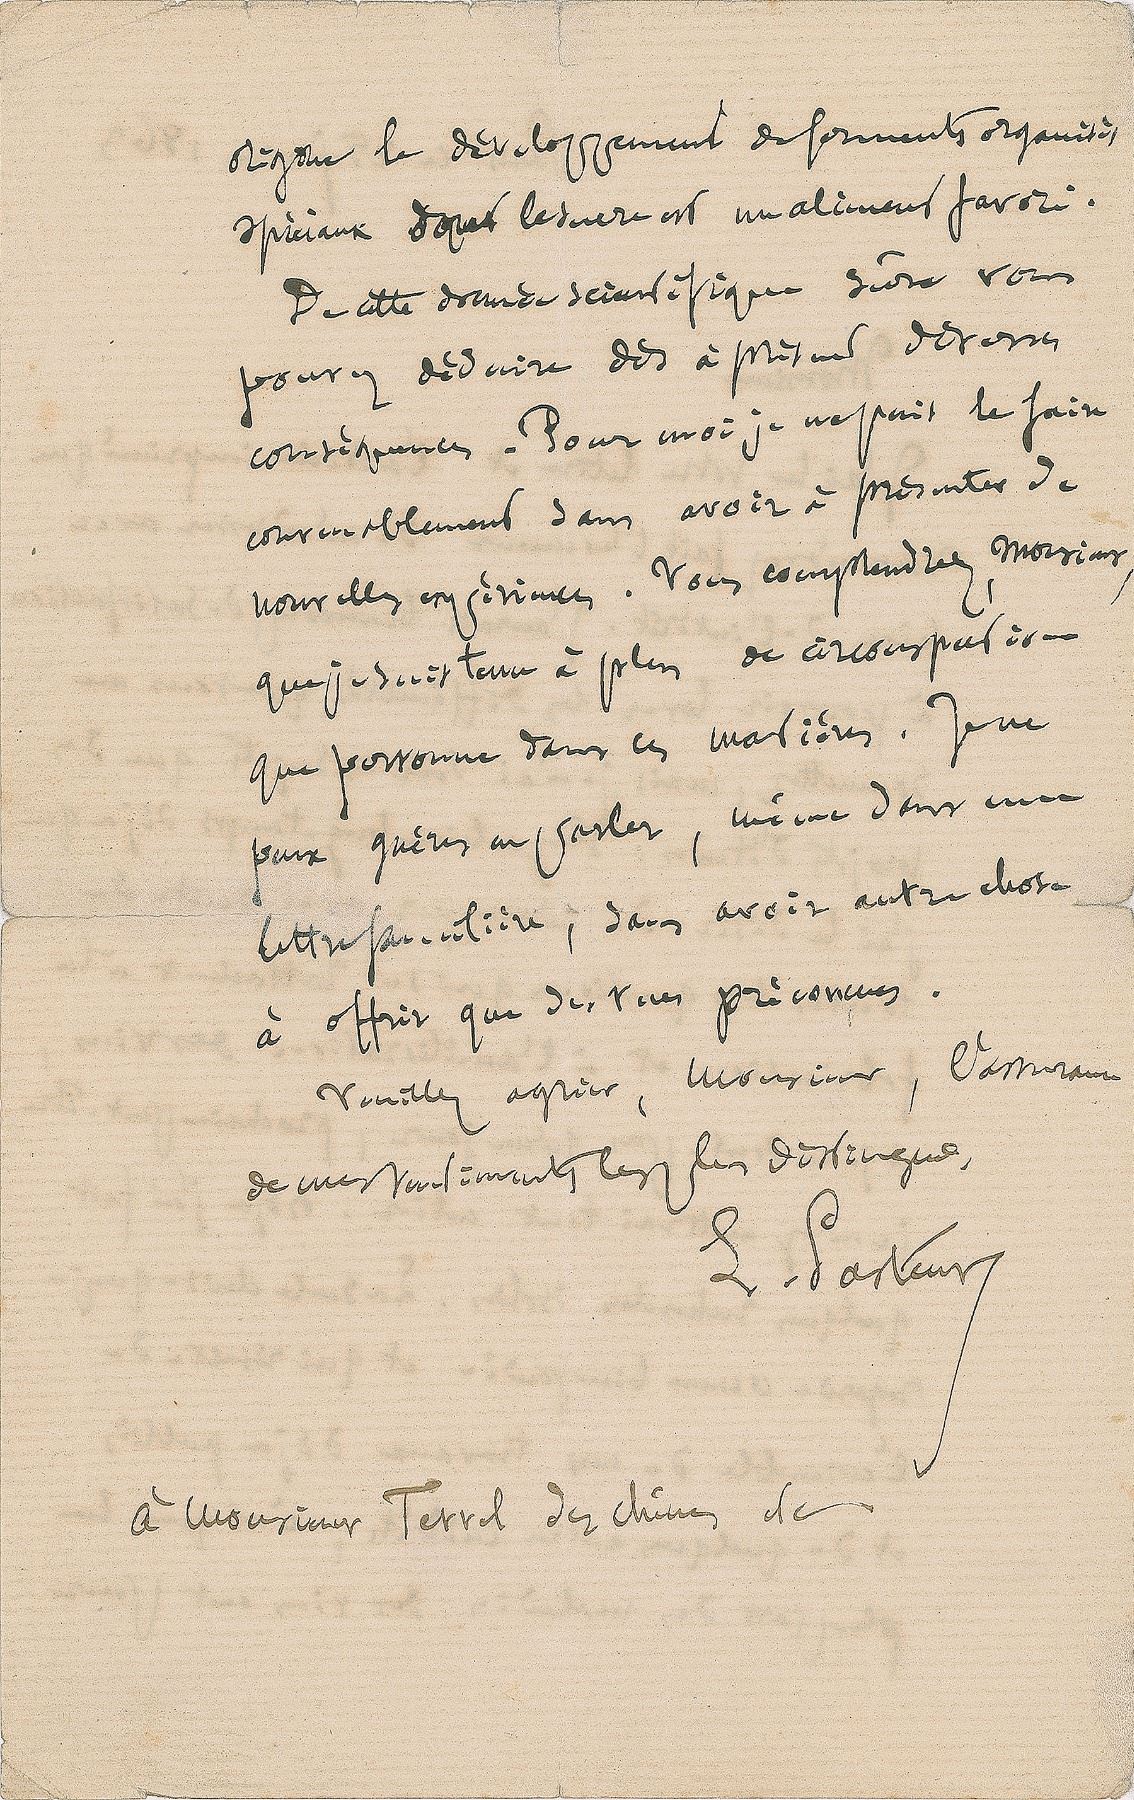 origine le développement de ferments organisés
spéciaux dont le sucre est un aliment favori.
De cette donnée scientifique sûre vous
pouvez déduire dès à présent diverses
conséquences. Pour moi je ne puis le faire
convenablement sans avoir à présenter de
nouvelles expériences. Vous comprendrez, Monsieur,
que je suis tenu à plus de circonspection
que personne dans ces matières. Je ne
puis guères en parler, même dans une
lettre familière, sans avoir autre chose
à offrir que des vues préconçues.
Veuillez agréer, Monsieur, l'assurance
de mes sentiments les plus distingués,
L. Pasteur
à Monsieur Terrel des chênes